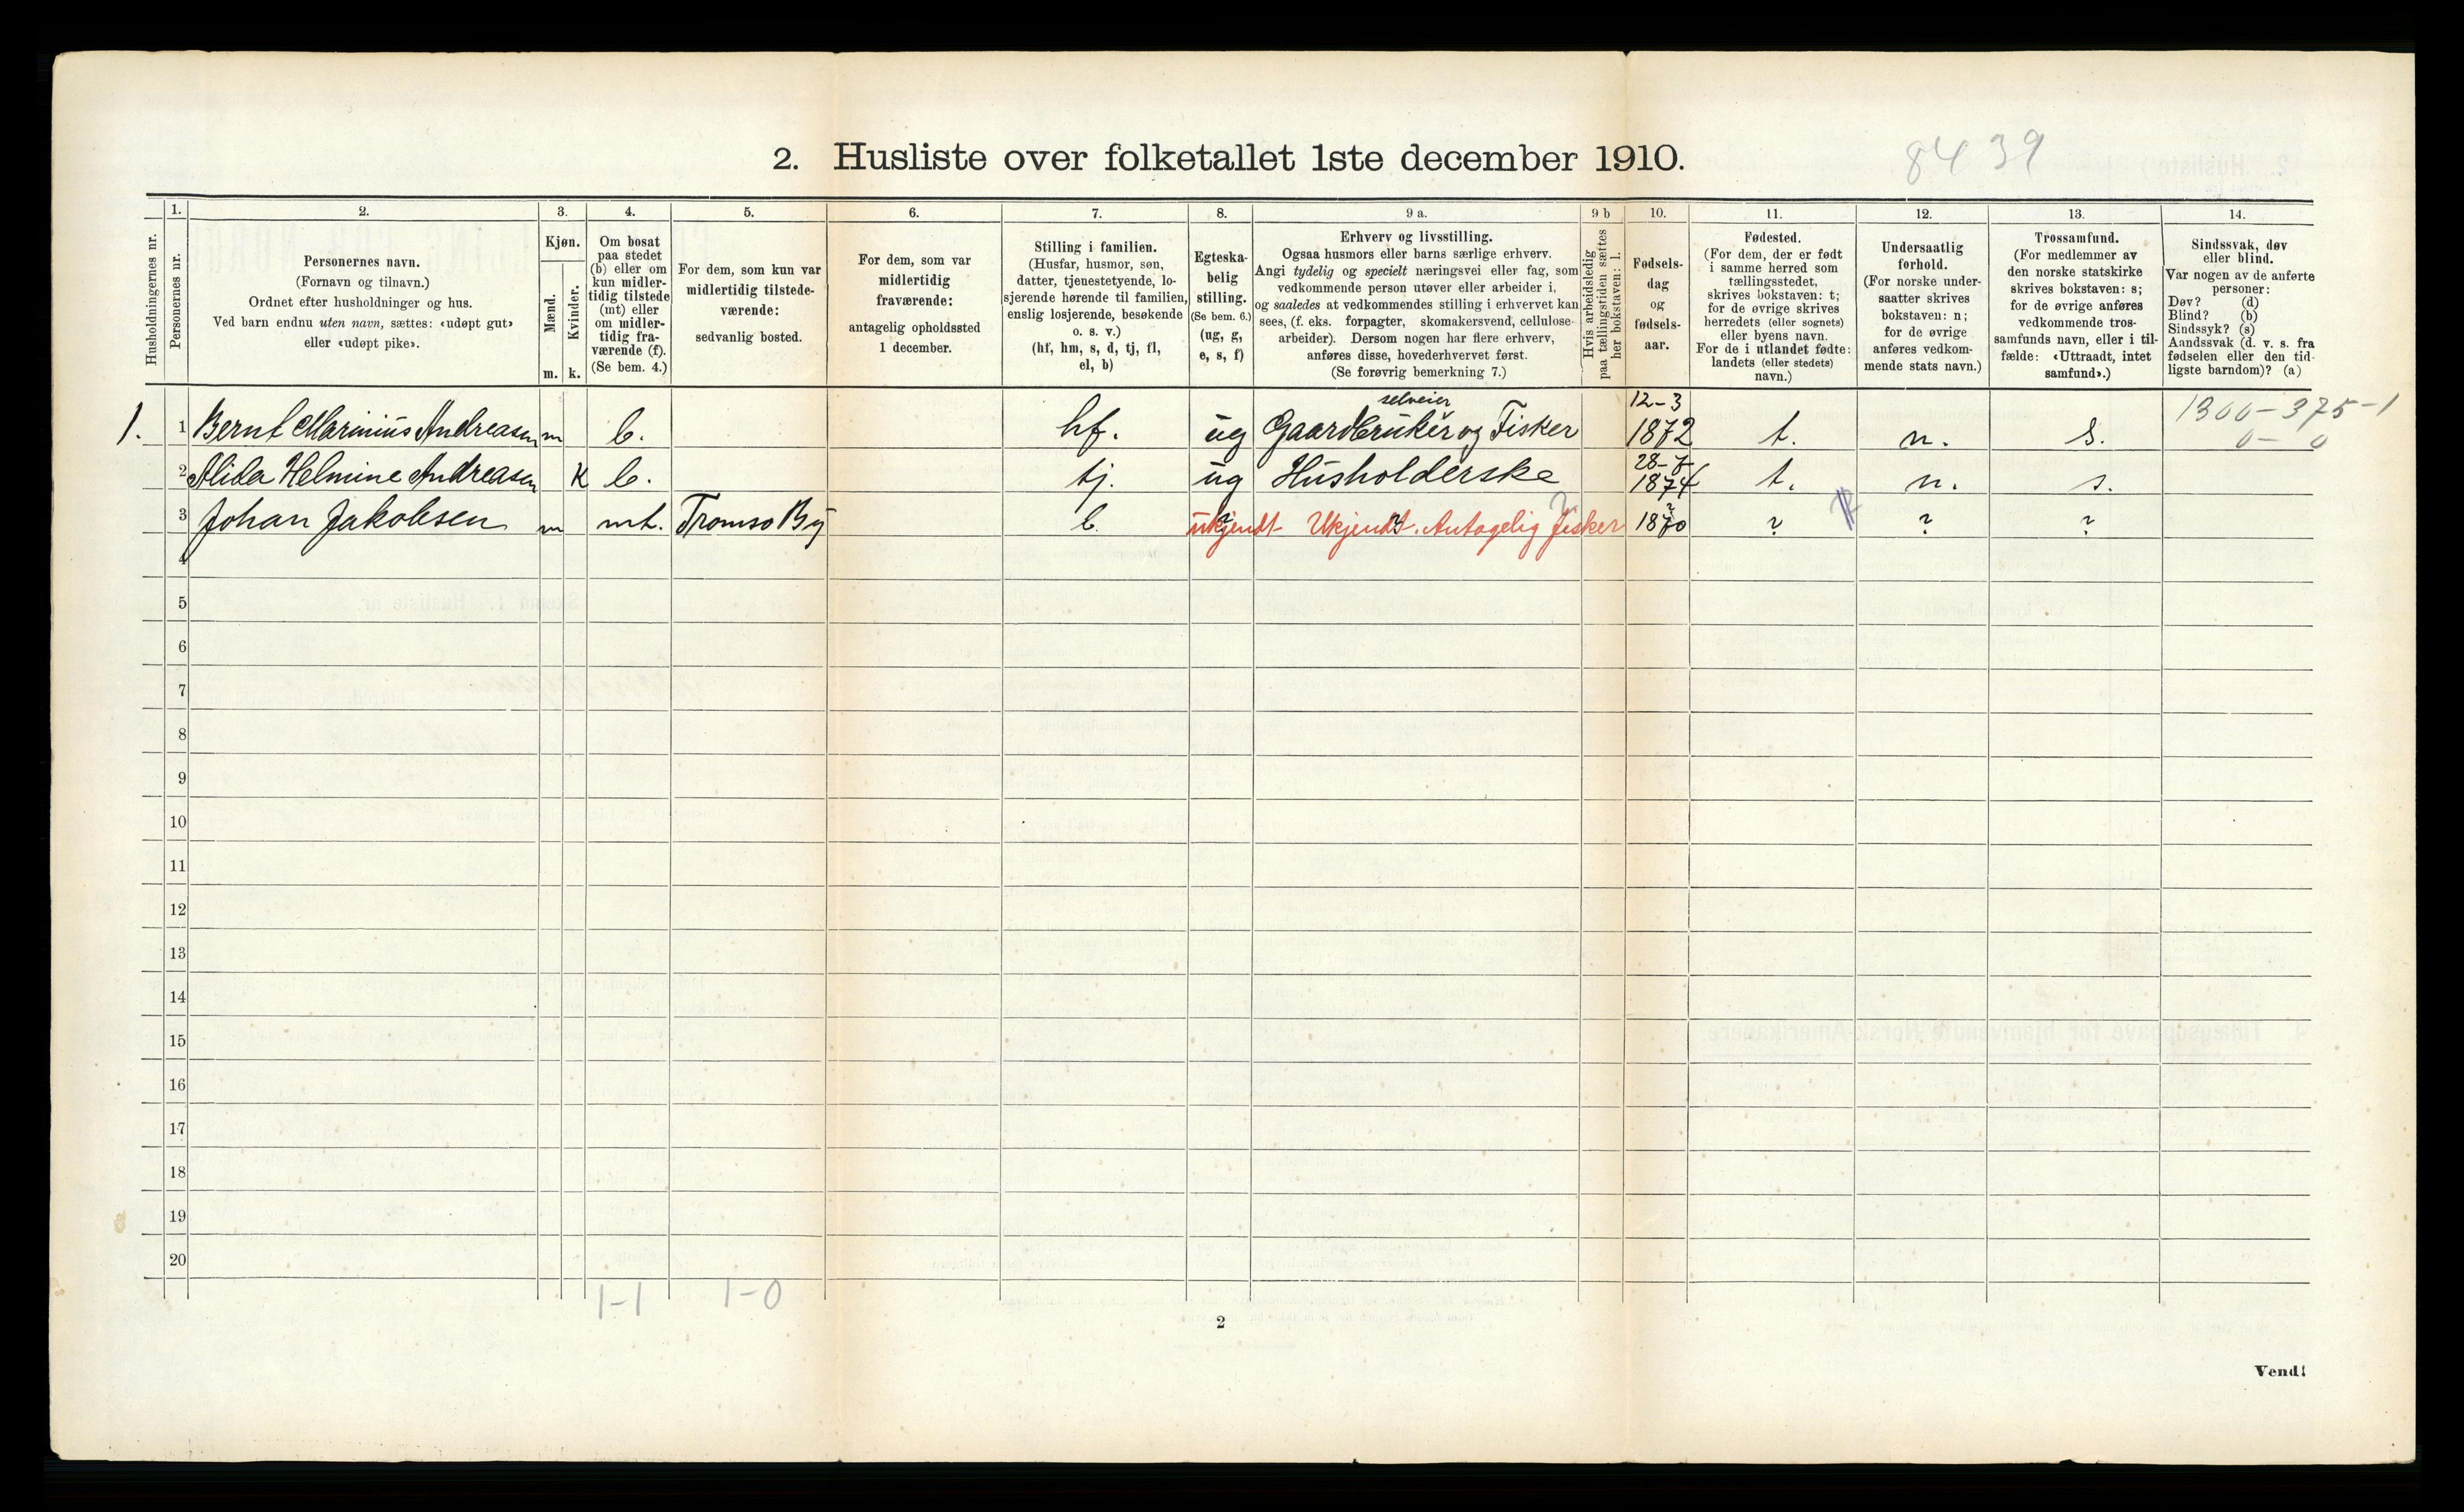 2. Husliste over folketallet 1ste december 1910.
8439
1. 2. 3. 4. 5. 6. 7. 8. 9 a. 9 b 10. 11. 12. 13. 14.
Husholdningernes nr.
Personernes nr.
Personernes navn.
(Fornavn og tilnavn.)
Ordnet efter husholdninger og hus.
Ved barn endnu uten navn, sættes: «udøpt gut»
eller «udøpt pike».
Kjøn.
Mænd.
Kvinder.
m. k.
Om bosat
paa stedet
(b) eller om
kun midler-
tidig tilstede
(mt) eller
om midler-
tidig fra-
værende (f).
(Se bem. 4.)
For dem, som kun var
midlertidig tilstede-
værende:
sedvanlig bosted.
For dem, som var
midlertidig
fraværende:
antagelig opholdssted
1 december.
Stilling i familien.
(Husfar, husmor, søn,
datter, tjenestetyende, lo-
sjerende hørende til familien,
enslig losjerende, besøkende
o. s. v.)
(hf, hm, s, d, tj, fl,
el, b)
Egteska-
belig
stilling.
(Se bem. 6.)
(ug, g,
e, s, f)
Erhverv og livsstilling.
Ogsaa husmors eller barns særlige erhverv.
Angi tydelig og specielt næringsvei eller fag, som
vedkommende person utøver eller arbeider i,
og saaledes at vedkommendes stilling i erhvervet kan
sees, (f. eks. forpagter, skomakersvend, cellulose-
arbeider). Dersom nogen har flere erhverv,
anføres disse, hovederhvervet først.
(Se forøvrig bemerkning 7.)
Hvis arbeidsledig
paa tællingstiden sættes
her bokstaven: l.
Fødsels-
dag
og
fødsels-
aar.
Fødested.
(For dem, der er født
i samme herred som
tællingsstedet,
skrives bokstaven: t;
for de øvrige skrives
herredets (eller sognets)
eller byens navn.
For de i utlandet fødte:
landets (eller stedets)
navn.)
Undersaatlig
forhold.
(For norske under-
saatter skrives
bokstaven: n;
for de øvrige
anføres vedkom-
mende stats navn.)
Trossamfund.
(For medlemmer av
den norske statskirke
skrives bokstaven: s;
for de øvrige anføres
vedkommende tros-
samfunds navn, eller i til-
fælde: «Uttraadt, intet
samfund».)
Sindssvak, døv
eller blind.
Var nogen av de anførte
personer:
Døv? (d)
Blind? (b)
Sindssyk? (s)
Aandssvak (d. v. s. fra
fødselen eller den tid-
ligste barndom)? (a)
selveier 12-3 1300-375-1
1. 1 Bernt Marinius Andreasen m b. hf. ug Gaardbruker og Fisker 1872 t. n. s. 0-0
28-7
2 Alida Helmine Andreasen K b. tj. ug Husholderske 1874 t. n. s.
3 Johan Jakobsen m mt. Tromsø By b ? ukjendt Ukjendt. Antagelig Fisker ? 1870 ? ? ?
4
5
6
7
8
9
10
11
12
13
14
15
16
17
18
19
20
1-1 1-0
2
Vend!